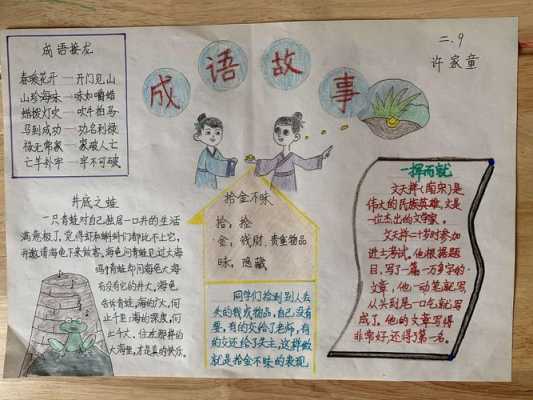 成语故事
二.9
许家童
成语接龙
春暖花开——开门见山
山珍海味——味如嚼蜡
马到成功——功名利禄
家破人亡
亡羊补牢——牢不可破
井底之蛙
一只青蛙对自己独居一口井的生活
满意极了,觉得虾和蝌蚪们都比不上它,
并邀请海龟下来做客。海龟问青蛙见过大海
吗?青蛙却问海龟大海
有没有它的井大,海龟
告诉青蛙,海的广大,何
止千里;海的深度,何
止千丈。住在那样的
大海里,才是真的快乐。
拾金不昧
拾:捡
金:钱财,贵重物品
昧:隐藏
同学们捡到别人丢
失的钱或物品,自己没有
要,有的交给了老师,有
的交还给了失主,这样做
就是拾金不昧的表现
一挥而就
文天祥(南宋)是
伟大的民族英雄,又是
一位杰出的文学家。
文天祥二十岁时参加
进士考试。他根据题
目,写了一篇一万多字的
文章,他一动笔就写
从头到尾是一口气就写
成了。他的文章写得
非常好,还得了第一名。